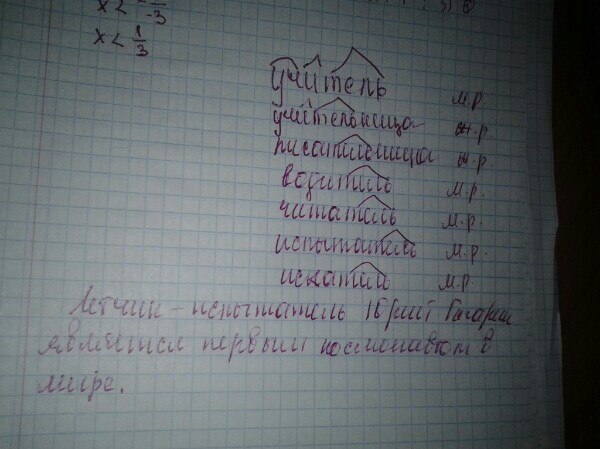 x <
-3
x < 1/3
учитель м.р.
учительница ж.р.
писательница ж.р.
водитель м.р.
читатель м.р.
испытатель м.р.
искатель м.р.
Летчик - испытатель Юрий Гагарин
является первым космонавтом в
мире.